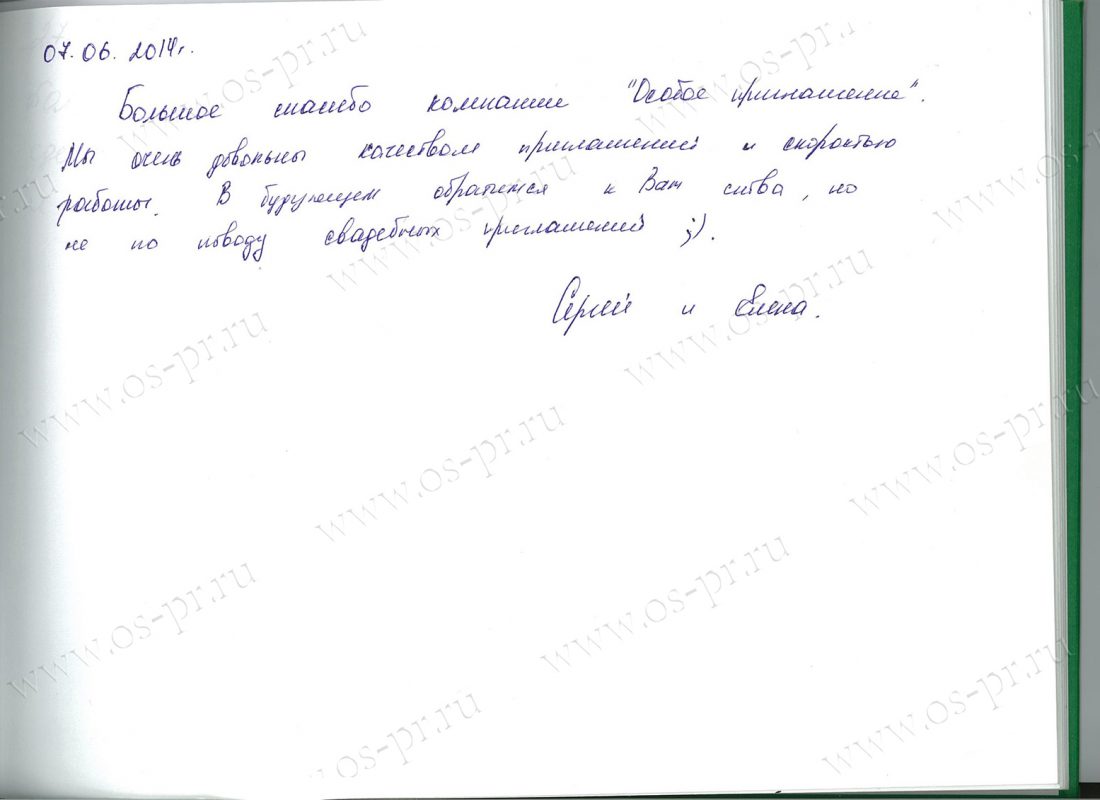 07.06.2014г.
Большое спасибо компании "Особое приглашение".
Мы очень довольны качеством приглашений и скоростью
работы. В будующем обратимся к Вам снова, но
не по поводу свадебных приглашений ;).
Сергей и Елена.
www.os-pr.ru
www.os-pr.ru
www.os-pr.ru
www.os-pr.ru
www.os-pr.ru
www.os-pr.ru
www.os-pr.ru
www.os-pr.ru
www.os-pr.ru
www.os-pr.ru
www.os-pr.ru